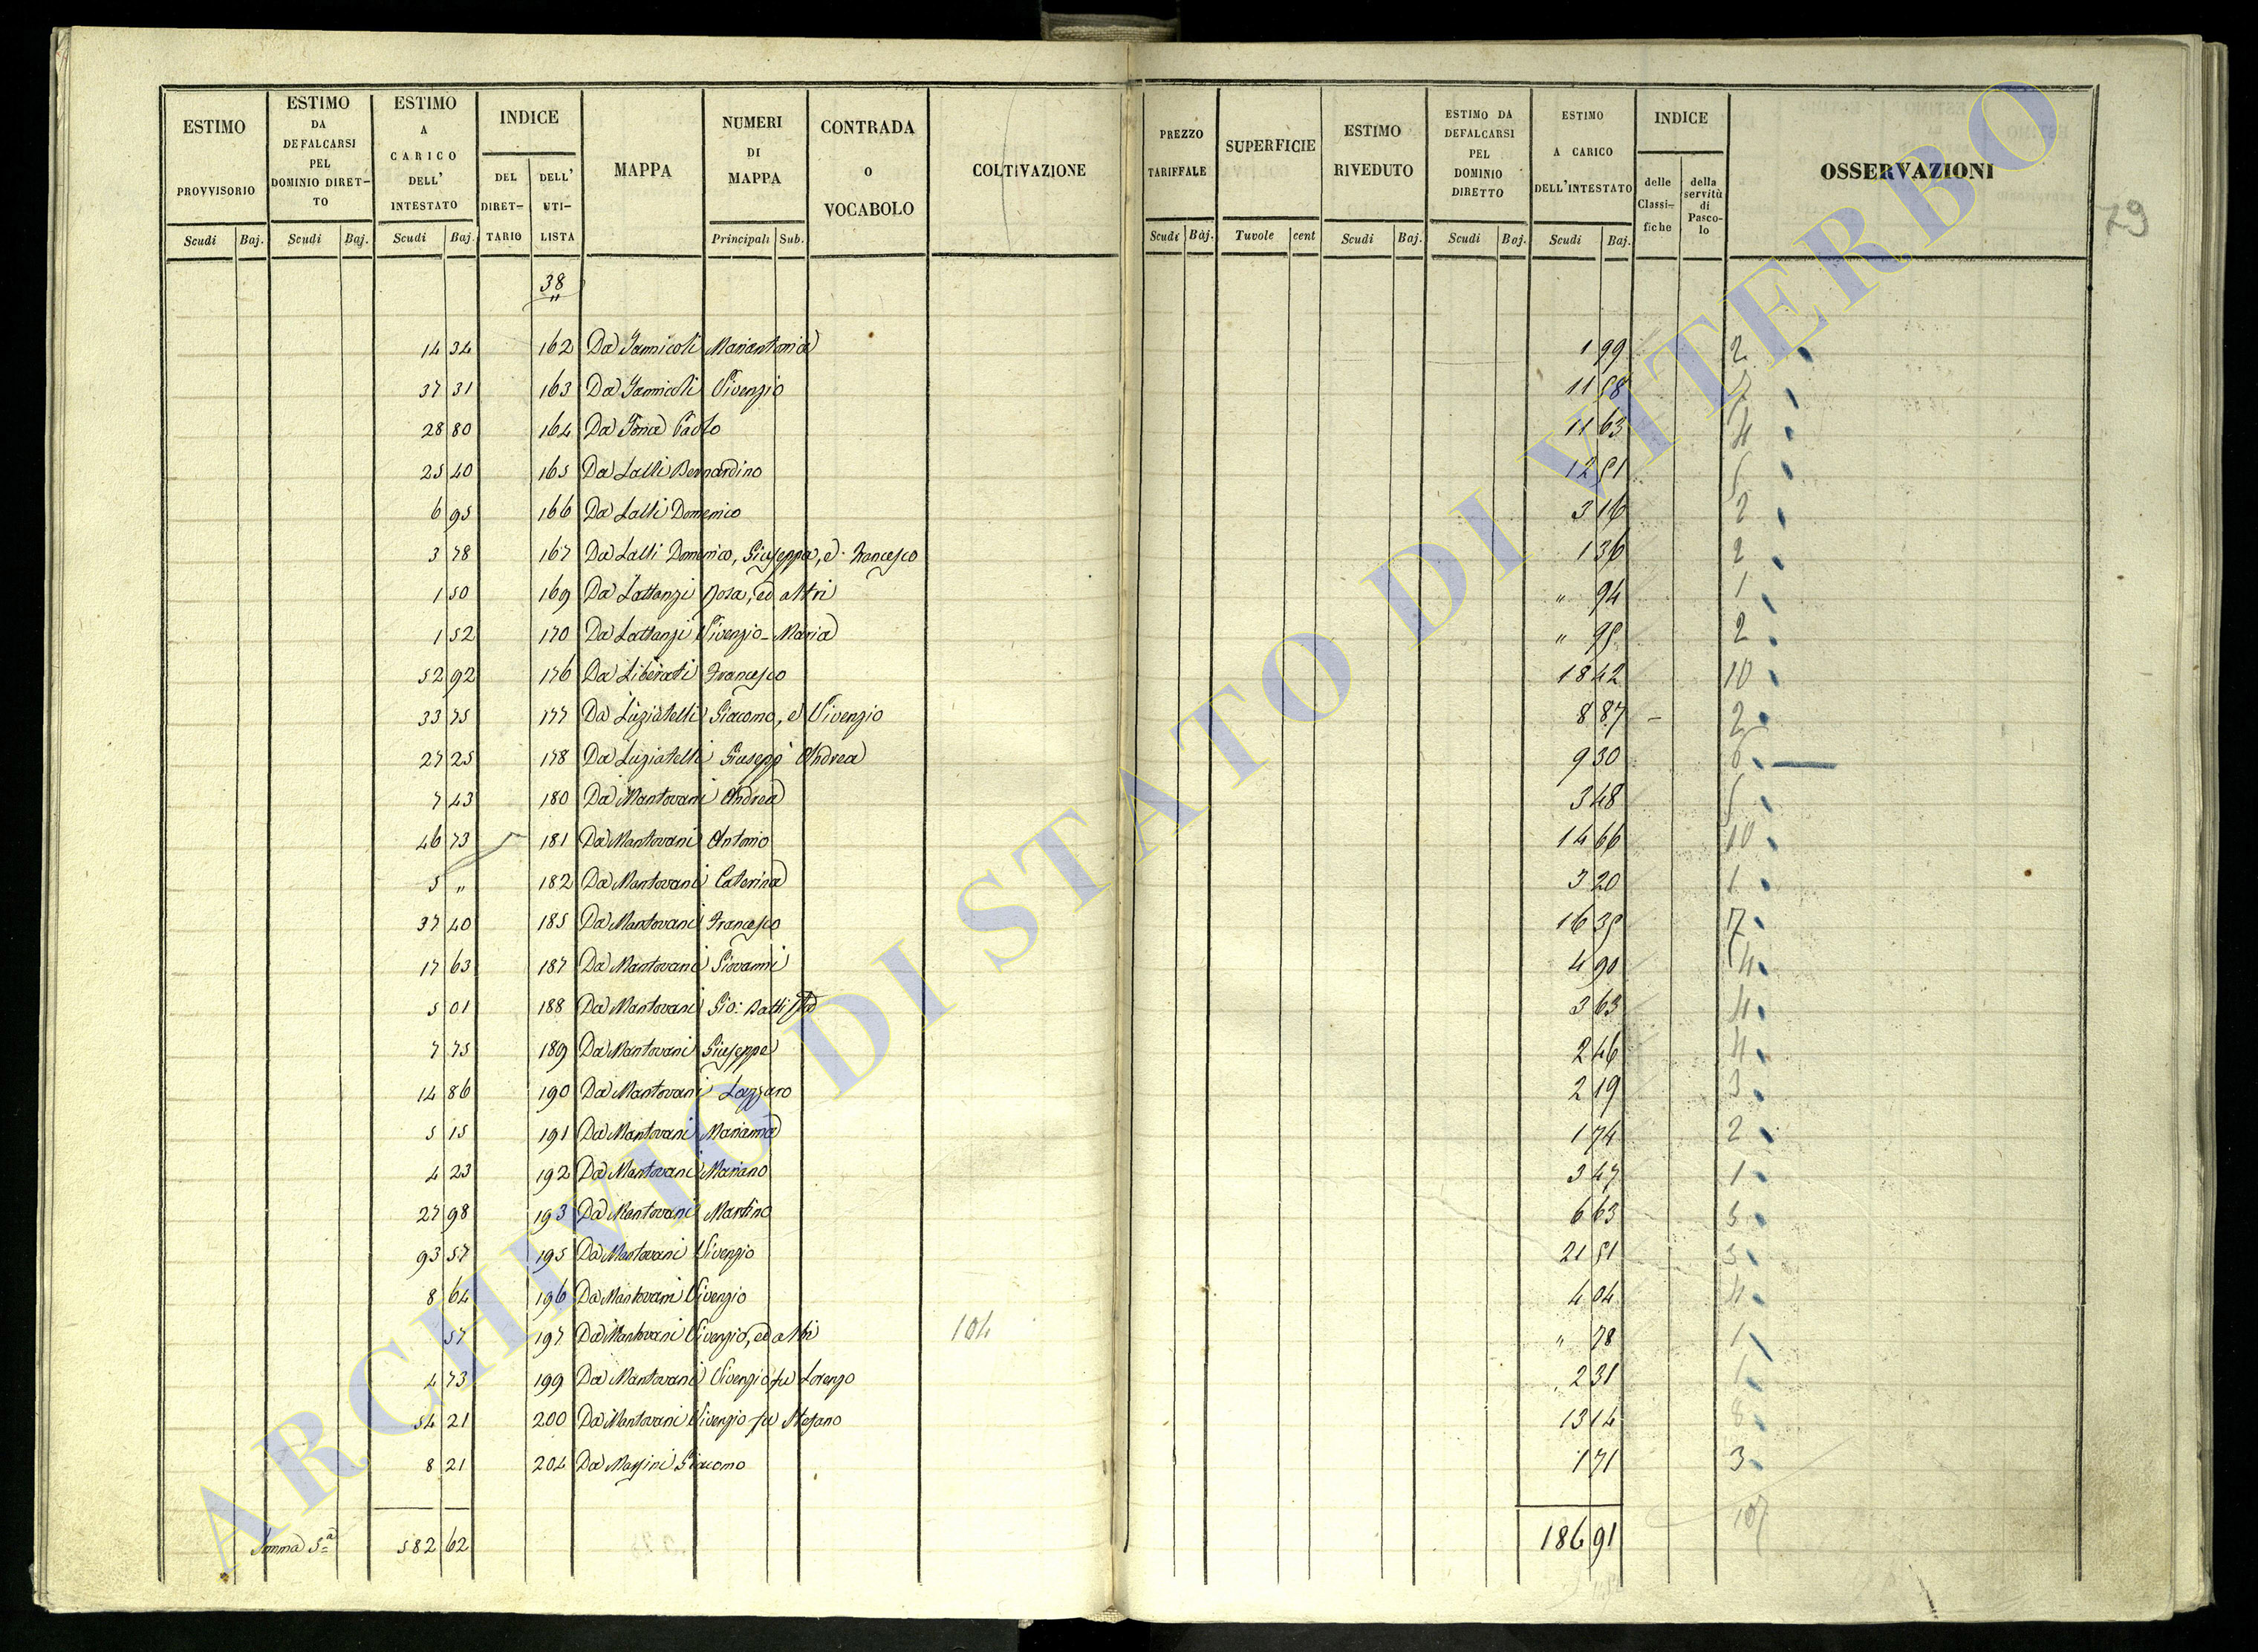 ESTIMO PROVVISORIO Scudi Baj.
ESTIMO DA DEFALCARSI PEL DOMINIO DIRET-TO Scudi Baj.
ESTIMO A CARICO DELL' INTESTATO Scudi Baj.
INDICE DEL DIRET-TARIO DELL' UTI-LISTA
MAPPA
NUMERI DI MAPPA Principali Sub.
CONTRADA o VOCABOLO
COLTIVAZIONE
PREZZO TARIFFALE Scudi Baj.
SUPERFICIE Tavole cent
ESTIMO RIVEDUTO Scudi Baj.
ESTIMO DA DEFALCARSI PEL DOMINIO DIRETTO Scudi Baj.
ESTIMO A CARICO DELL'INTESTATO Scudi Baj.
INDICE delle Classi-fiche della servitù di Pasco-lo
OSSERVAZIONI
79
38
14 34 162 Da Jannicoli Mariantonia 1 99 2
37 31 163 Da Jannicoli Vivenzio 11 58
28 80 164 Da Jona Paolo 11 63 4
25 40 165 Da Lalli Bernardino 12 51 5
6 95 166 Da Lalli Domenico 3 16 2
3 78 167 Da Lalli Domenico, Giuseppe, e Francesco 1 36 2
1 50 169 Da Lattanzi Rosa, ed altri " 94 1
1 52 170 Da Lattanzi Vivenzio-Maria " 95 2
52 92 176 Da Liberati Francesco 18 42 10
33 75 177 Da Luziatelli Giacomo, e Vivenzio 8 87 2
27 25 178 Da Luziatelli Giusepp' Andrea 9 30 6
7 43 180 Da Mantovani Andrea 3 48 5
46 73 181 Da Mantovani Antonio 14 66 10
5 " 182 Da Mantovani Caterina 3 20 1
37 40 185 Da Mantovani Francesco 16 35 7
17 63 187 Da Mantovani Giovanni 4 90 4
5 01 188 Da Mantovani Gio: Battista 3 63 4
7 75 189 Da Mantovani Giuseppe 2 46 4
14 86 190 Da Mantovani Lazzaro 2 19 3
5 15 191 Da Mantovani Marianna 1 74 2
4 23 192 Da Mantovani Mariano 3 47 1
27 98 193 Da Mantovani Martino 6 63 5
93 57 195 Da Mantovani Vivenzio 21 51 3
8 64 196 Da Mantovani Vivenzio 4 04 4
57 197 Da Mantovani Vivenzio, ed altri 104 " 78 1
4 73 199 Da Mantovani Vivenzio fu Lorenzo 2 31 1
54 21 200 Da Mantovani Vivenzio fu Stefano 13 14 8
8 21 204 Da Massini Giacomo 1 71 3
Somma 5=a 582 62 186 91 107
ARCHIVIO DI STATO DI VITERBO